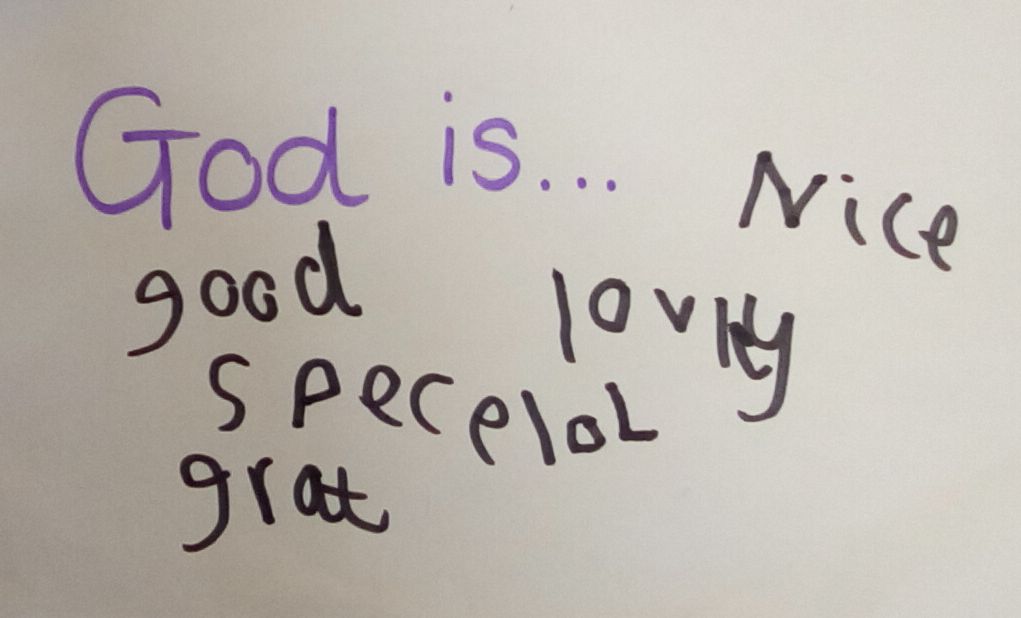 God is...
Nice
good
lovly
specelol
grat